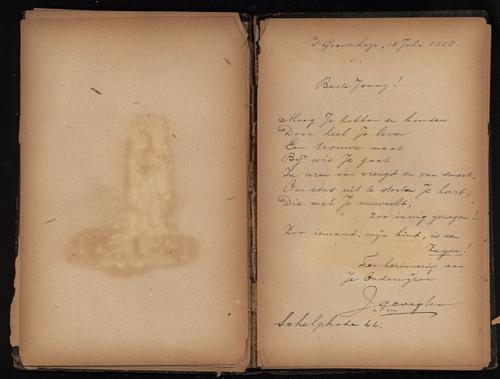 's-Gravenhage, 13 Juli 1923.
Beste Jenny!
Moog Je hebben en houden
Door heel Je leven
Een trouwe maat
Bij wie Je gaat
In uren van vreugd en van smart,
Om eens uit te storten Je hart;
Die met Je meevoelt,
Zoo innig genegen!
Zoo iemand, mijn kind, is een
Zegen!
Ter herinnering aan
Je Onderwijzer
Schelpkade 44.